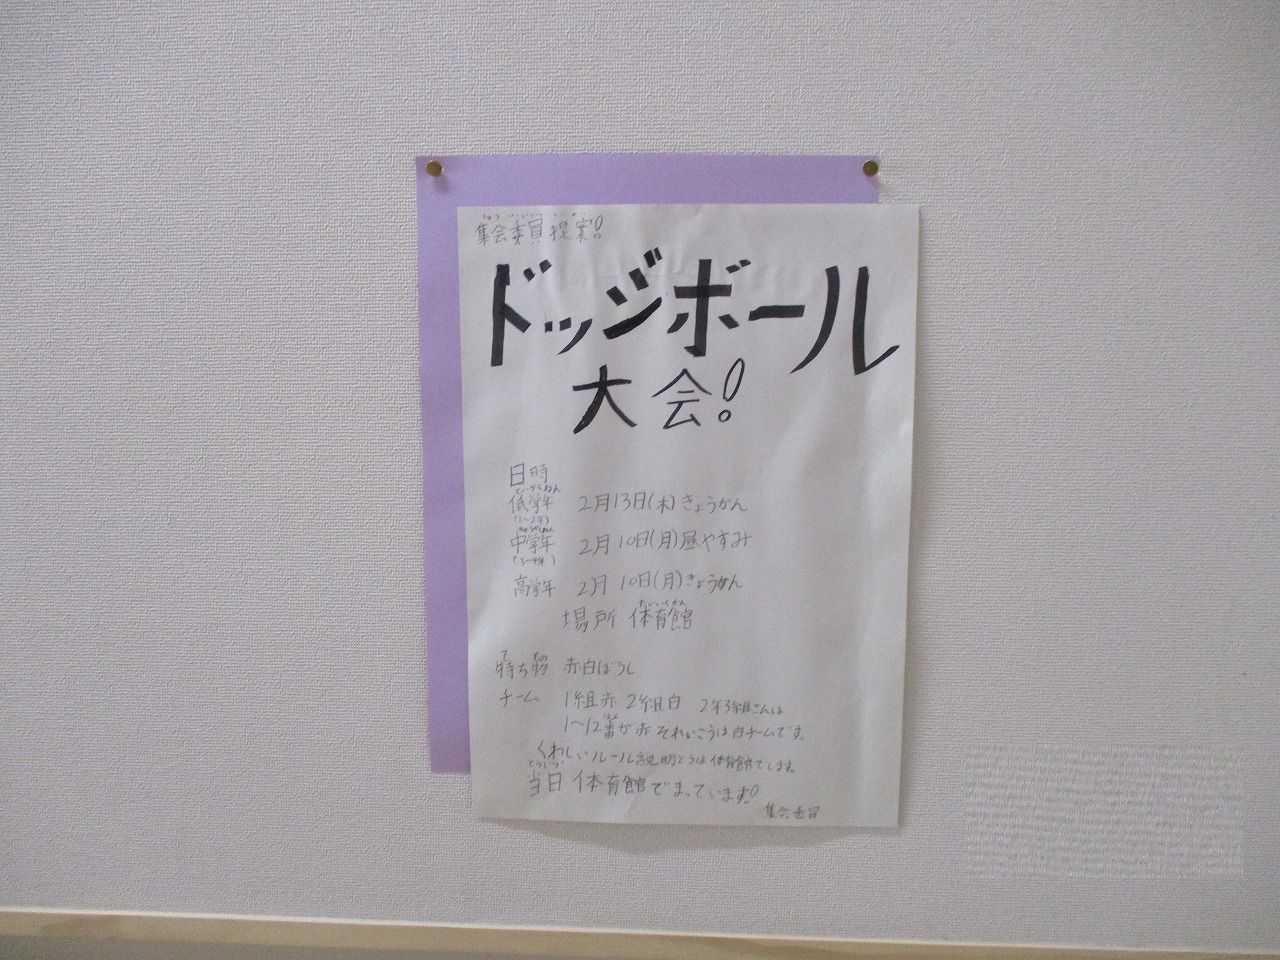 集会委員提案!
ドッジボール
大会!
日時
低学年 2月13日(木)きょうかん
(1〜2年)
中学年 2月10日(月)昼やすみ
(3〜4年)
高学年 2月10日(月)きょうかん
場所 体育館
持ち物 赤白ぼうし
チーム 1組赤 2組白 2年3組さんは
1〜12番が赤 それいこうは白チームです。
くわしいルール説明とうは体育館でします。
当日 体育館でまっています!
集会委員